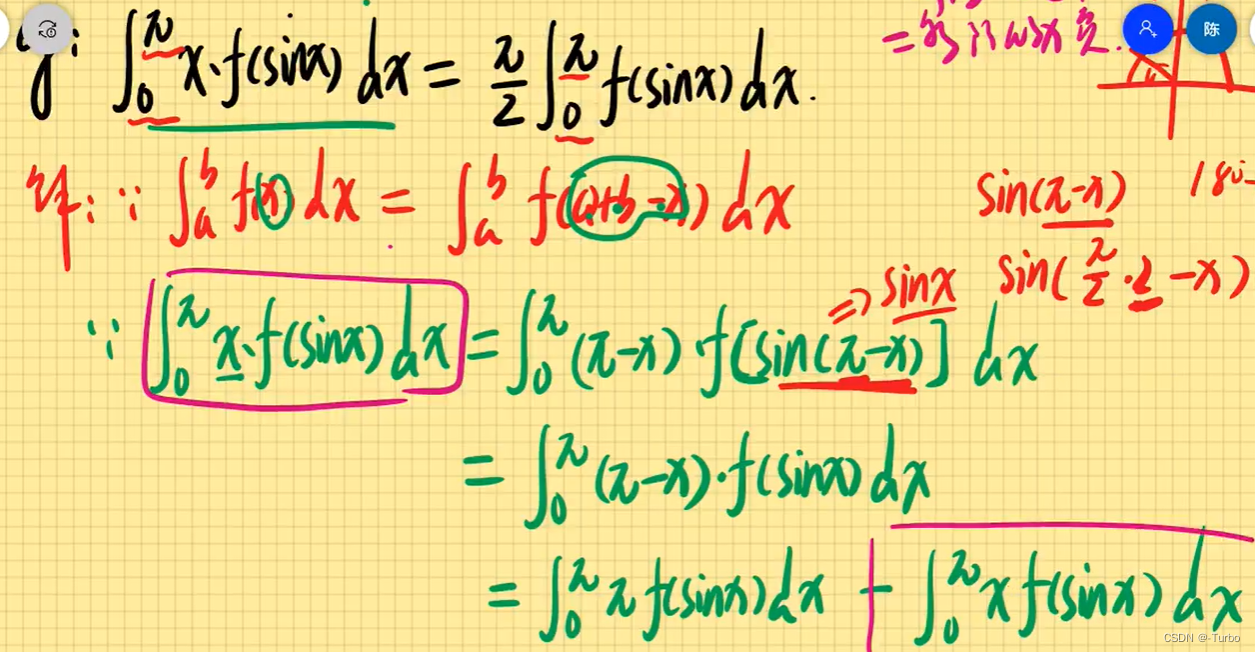 ∫₀^π x·f(sinx) dx = π/2 ∫₀^π f(sinx) dx.
陈
证: ∵ ∫ₐᵇ f(x) dx = ∫ₐᵇ f(a+b-x) dx
sin(π-x)
=> sinx sin(π/2·2-x)
∵ ∫₀^π x·f(sinx) dx = ∫₀^π (π-x)·f[sin(π-x)] dx
= ∫₀^π (π-x)·f(sinx) dx
= ∫₀^π π f(sinx) dx - ∫₀^π x f(sinx) dx
CSDN @-Turbo